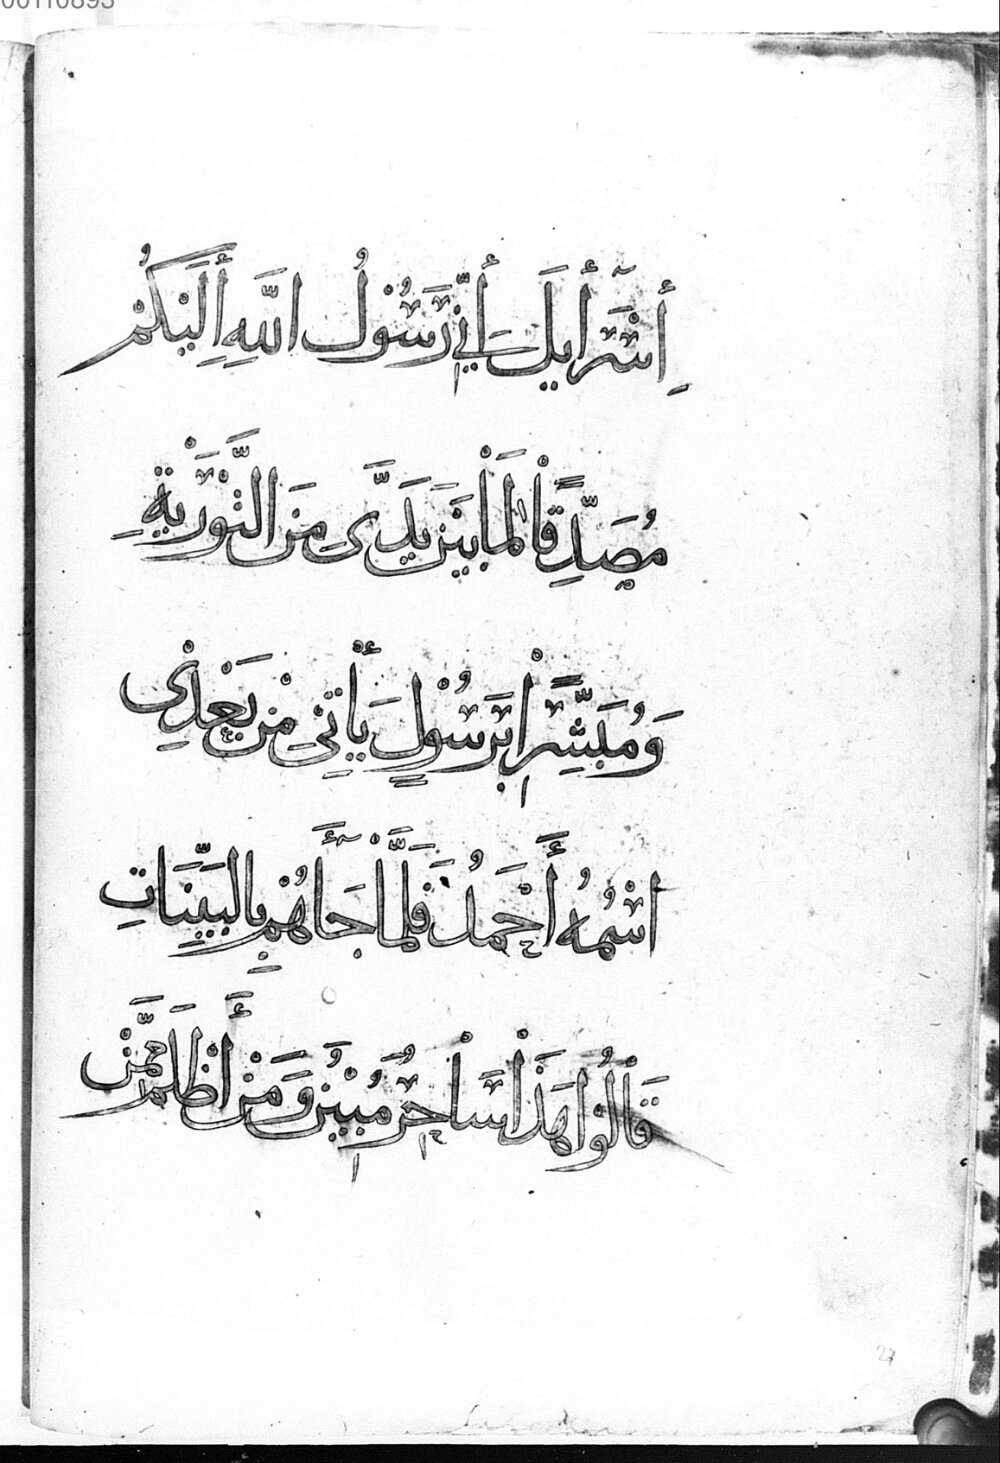 00110893
إِسْرَآءِيلَ إِنِّي رَسُوْلُ اللَّهِ إِلَيْكُمْ
مُصَدِّقًا لِمَا بَيْنَ يَدَيَّ مِنَ التَّوْرَيةِ
وَمُبَشِّرًا بِرَسُوْلٍ يَأْتِي مِنْ بَعْدِي
اسْمُهُ أَحْمَدُ فَلَمَّا جَآءَهُمْ بِالبَيِّنَاتِ
قَالُوْا هَذَا سَاحِرٌ مُبِيْنٌ وَمَنْ أَظْلَمُ مِمَّنْ
27